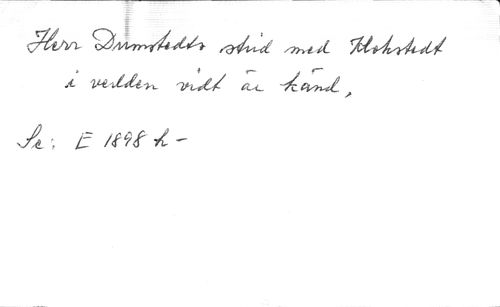 Herr Dumstedts strid med Klokstedt
i verlden vidt är känd,
Se: E 1898 h -